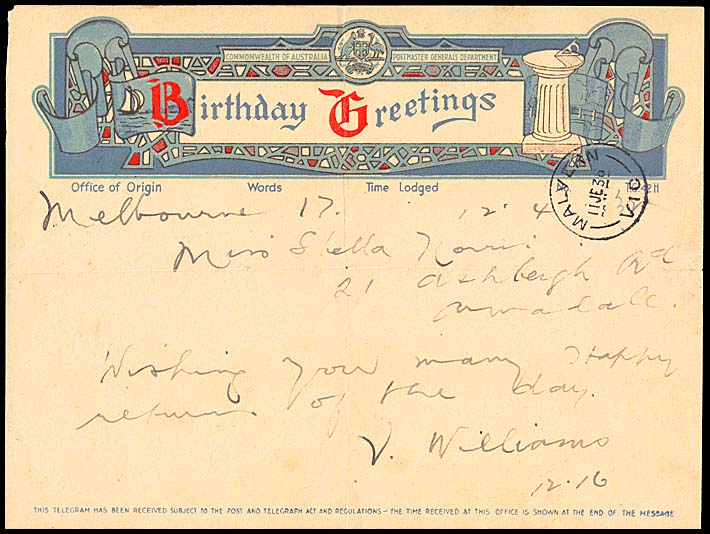 COMMONWEALTH OF AUSTRALIA POSTMASTER GENERALS DEPARTMENT
Birthday Greetings
Office of Origin Words Time Lodged
MALVERN VIC
11JE38
Melbourne 17. 12.4
Miss Stella Norris
21 Ashleigh Rd
Armadale.
Wishing you many Happy
returns of the day.
V. Williams
12.16
THIS TELEGRAM HAS BEEN RECEIVED SUBJECT TO THE POST AND TELEGRAPH ACT AND REGULATIONS – THE TIME RECEIVED AT THIS OFFICE IS SHOWN AT THE END OF THE MESSAGE